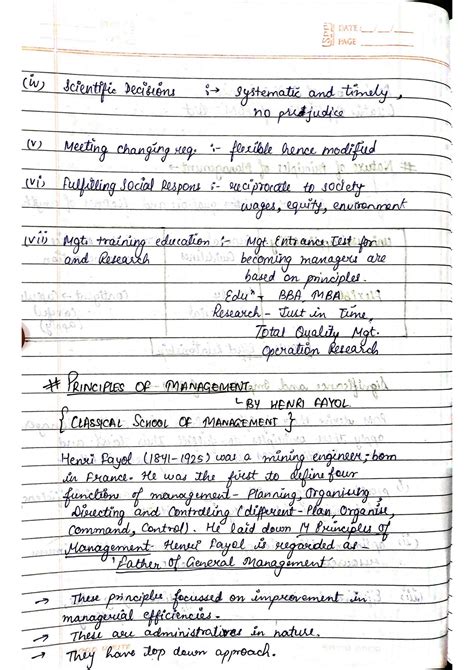 DATE: __/__/__
PAGE
(iv) Scientific Decisions :→ Systematic and timely,
no prejudice
(v) Meeting changing req. :- flexible hence modified
(vi) Fulfilling Social Respons :- reciprocate to society
wages, equity, environment
(vii) Mgt. training education :- Mgt. Entrance Test for
and Research becoming managers are
based on principles.
Eduⁿ - BBA, MBA
Research - Just in Time,
Total Quality Mgt.
Operation Research
# PRINCIPLES OF MANAGEMENT
BY HENRI FAYOL
{ CLASSICAL SCHOOL OF MANAGEMENT }
Henri Fayol (1841-1925) was a mining engineer; born
in France. He was the first to define four
function of management - Planning, Organising,
Directing and Controlling (different - Plan, Organise,
Command, Control). He laid down 14 Principles of
Management. Henri Fayol is regarded as
'Father of General Management'
→ These principles focussed on improvement in
managerial efficiencies.
→ These are administratives in nature.
→ They have top down approach.